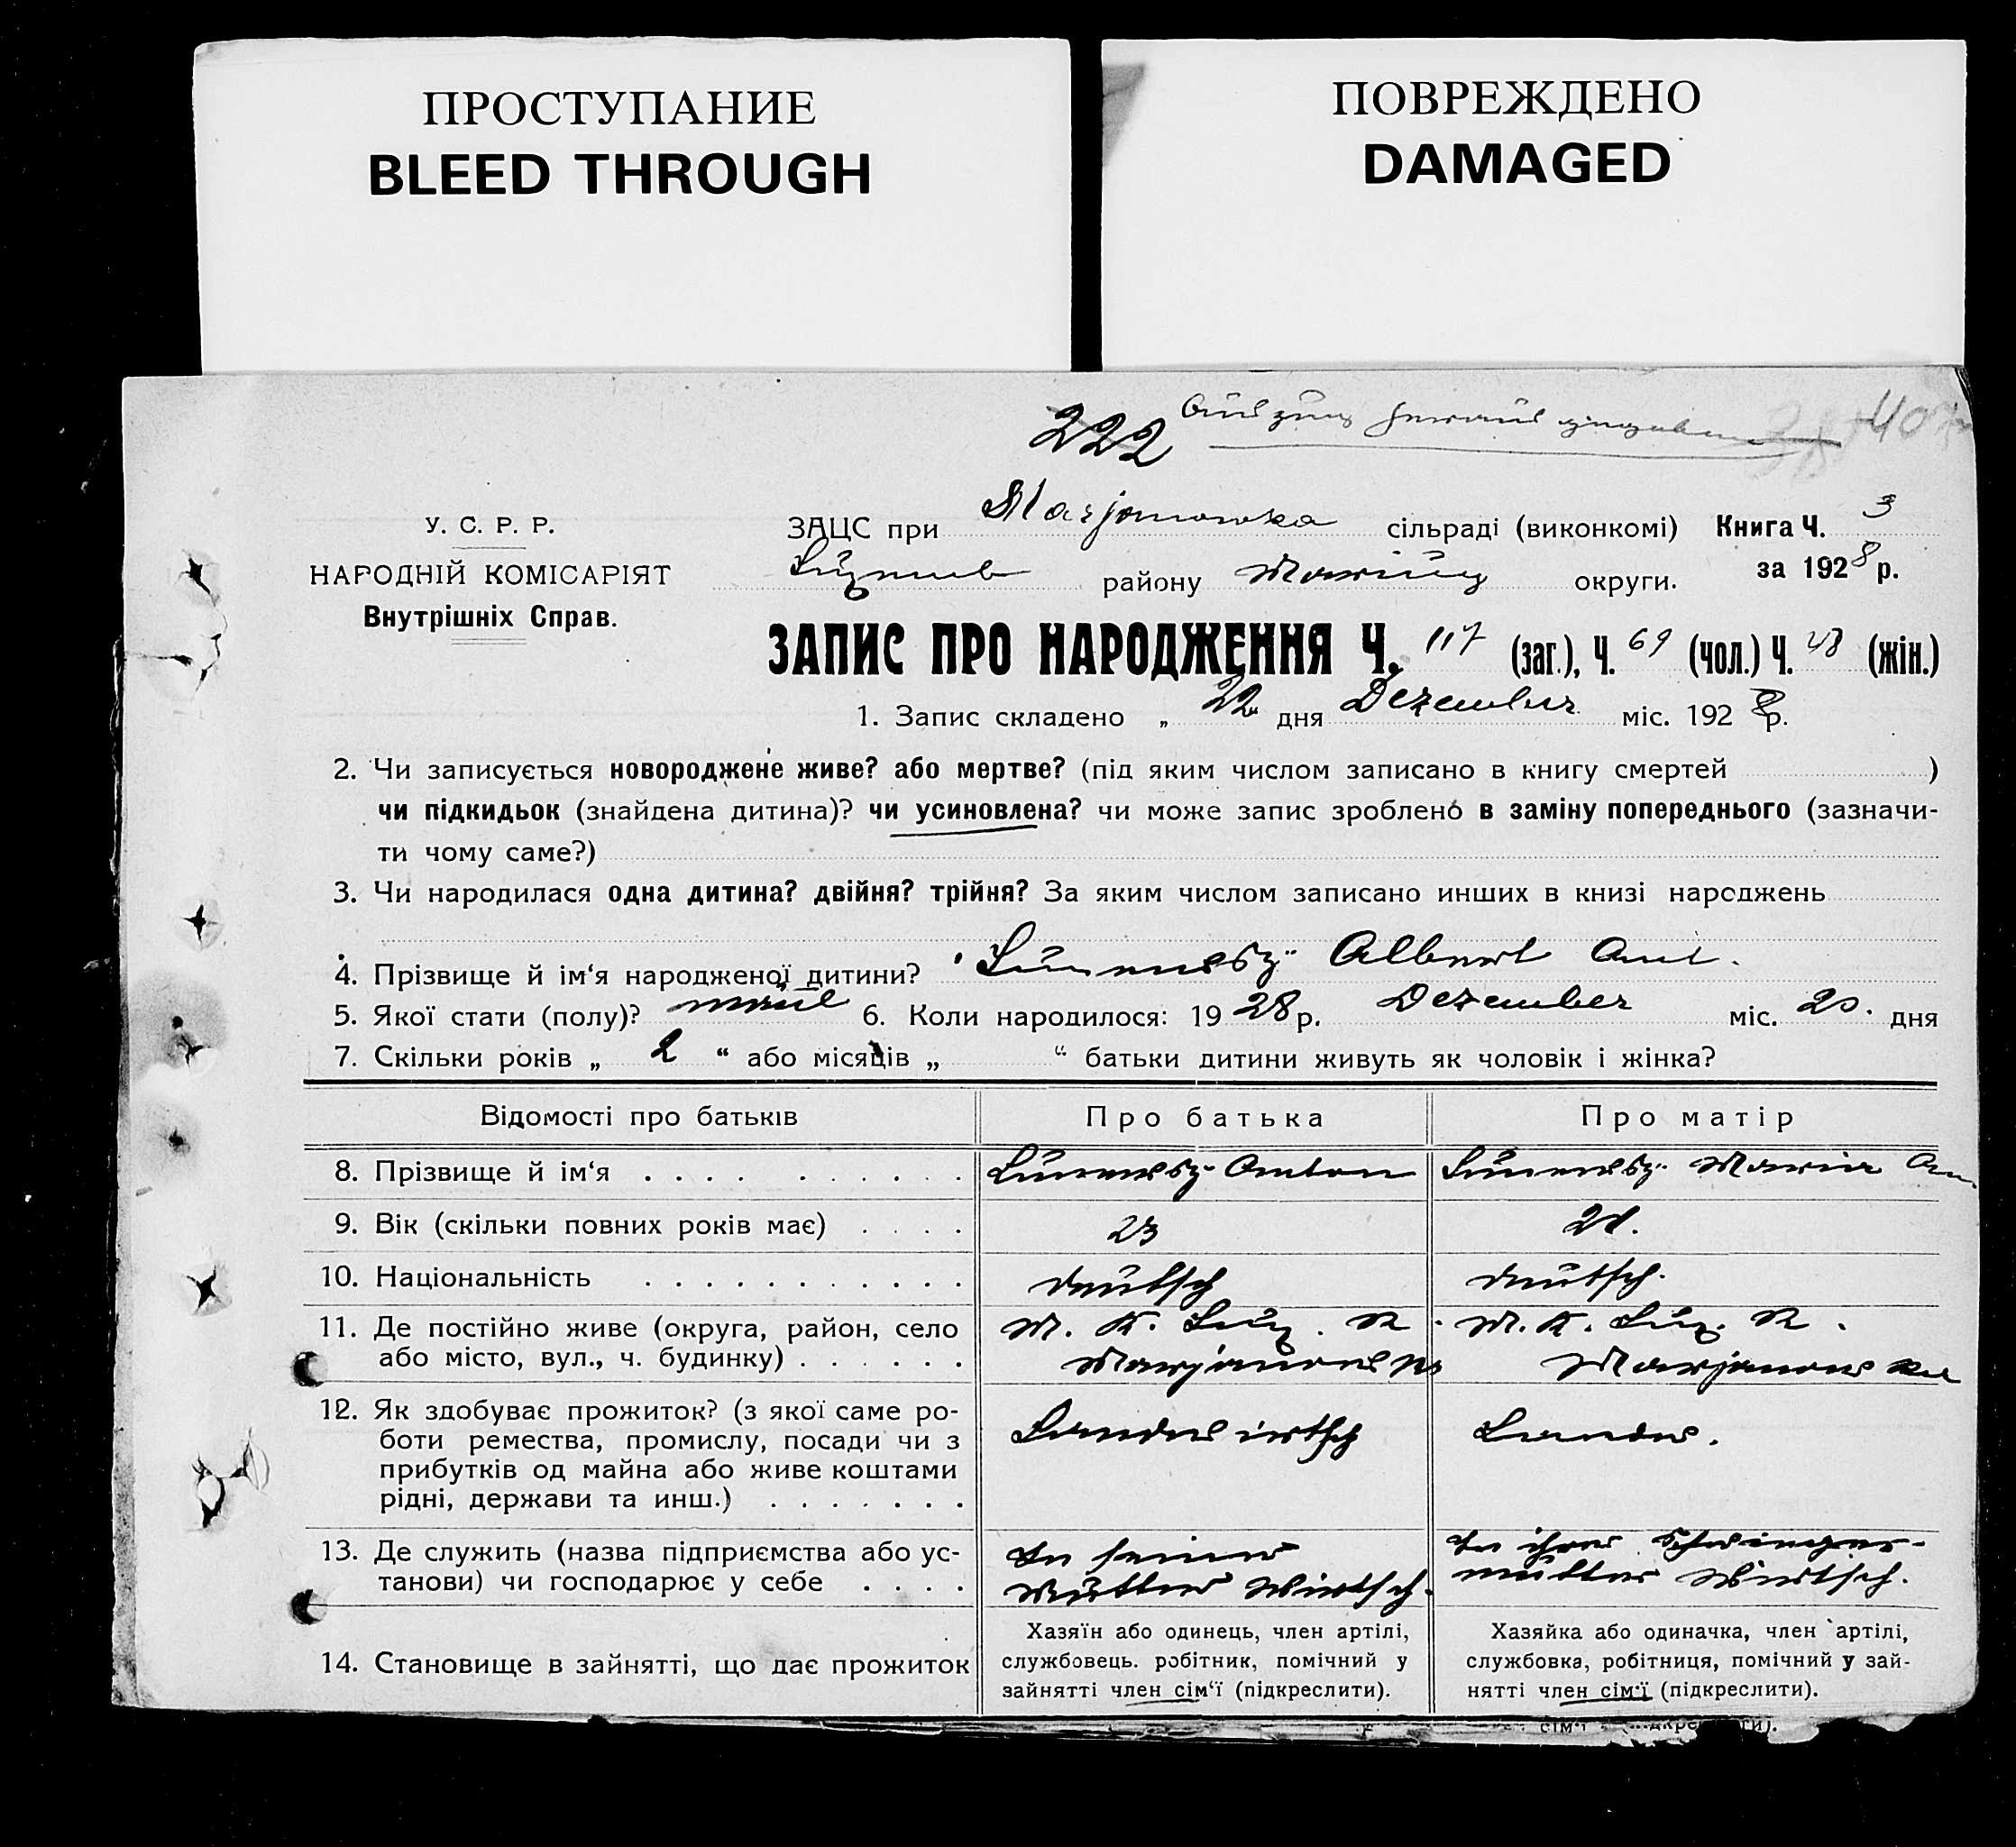 ПРОСТУПАНИЕ
BLEED THROUGH
ПОВРЕЖДЕНО
DAMAGED
222
У. С. Р. Р.
НАРОДНІЙ КОМІСАРІЯТ
Внутрішніх Справ.
ЗАЦС при Marjanowka сільраді (виконкомі) Книга Ч. 3
району округи. за 1928 р.
ЗАПИС ПРО НАРОДЖЕННЯ Ч. 117 (заг.), Ч. 69 (чол.) Ч. 48 (жін.)
1. Запис складено „ 22 дня Dezember міс. 1928 р.
2. Чи записується новороджене живе? або мертве? (під яким числом записано в книгу смертей )
чи підкидьок (знайдена дитина)? чи усиновлена? чи може запис зроблено в заміну попереднього (зазначи-
ти чому саме?)
3. Чи народилася одна дитина? двійня? трійня? За яким числом записано инших в книзі народжень
4. Прізвище й ім‘я народженої дитини? Albert Ant.
5. Якої стати (полу)? 6. Коли народилося: 1928 р. Dezember міс. 20. дня
7. Скільки років „ 2 “ або місяців „ “ батьки дитини живуть як чоловік і жінка?
Відомості про батьків Про батька Про матір
8. Прізвище й ім‘я Anton Maria
9. Вік (скільки повних років має) 23 21.
10. Національність deutsch deutsch.
11. Де постійно живе (округа, район, село M. K. R. M. K. R.
або місто, вул., ч. будинку) Marjanowka Marjanowka
12. Як здобуває прожиток? (з якої саме ро-
боти ремества, промислу, посади чи з Landwirtsch Landw.
прибутків од майна або живе коштами
рідні, держави та инш.)
13. Де служить (назва підприємства або ус- In seiner In ihrer Schwieger-
танови) чи господарює у себе Mutter Wirtsch. mutter Wirtsch.
14. Становище в зайнятті, що дає прожиток
Хазяїн або одинець, член артілі,
службовець. робітник, помічний у
зайнятті член сім‘ї (підкреслити).
Хазяйка або одиначка, член артілі,
службовка, робітниця, помічний у зай-
нятті член сім‘ї (підкреслити).